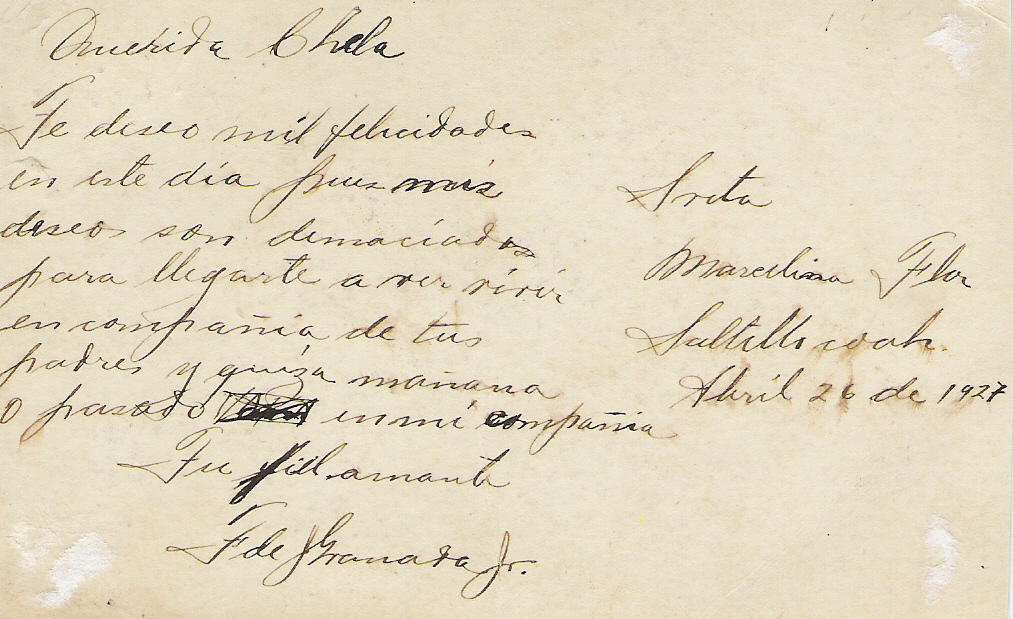 Querida Chela
Te deseo mil felicidades
en este día pues mis
deseos son demaciados
para llegarte a ver vivir
en compañia de tus
padres y quiza mañana
o pasado en mi compañia
Tu fiel amante
F de J Granada Jr.
Srita
Marcelina Flor
Saltillo coah.
Abril 26 de 1927